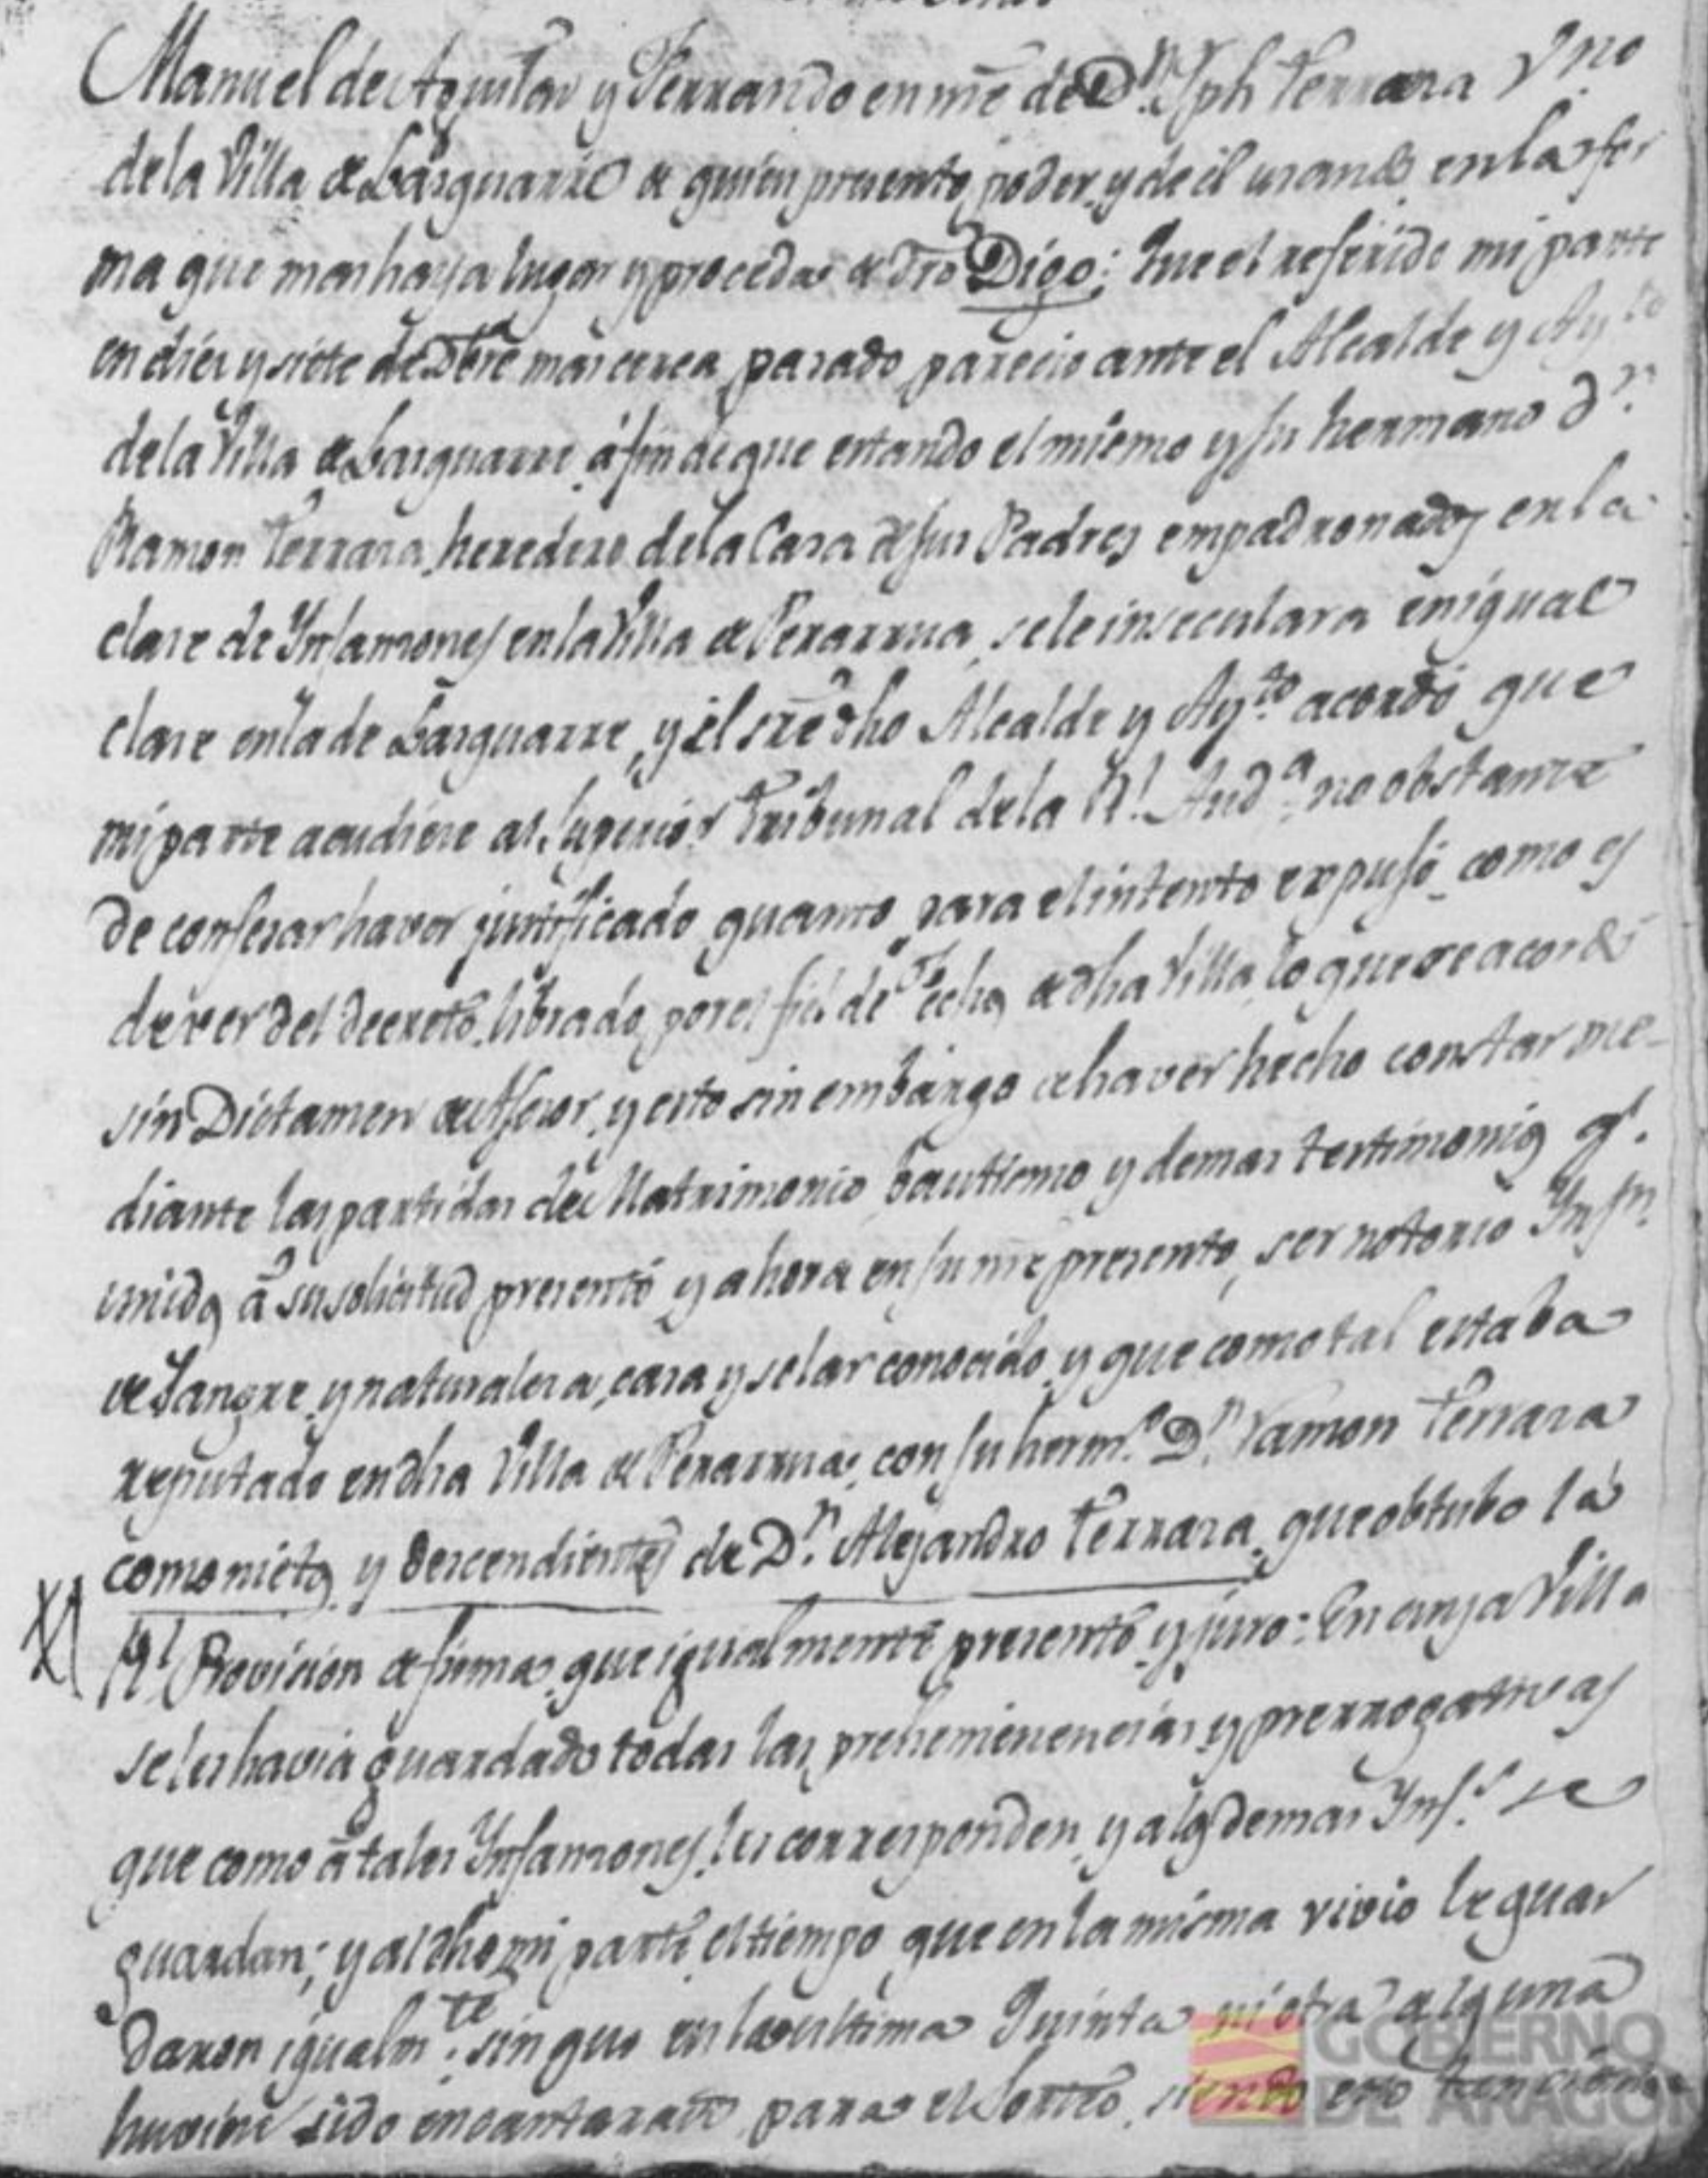 Manuel de Aguilar y Ferrando en nre de Dn. Jph Ferraza Vno
de la Villa de Lasquarre de quien presento poder, y de el usando en la for
ma que mas haya lugar y proceda de dro Digo: Que el referido mi parte
en diez y siete de Dbre mas cerca pasado parecio ante el Alcalde y Aytto
de la Villa de Lasquarre, á fin de que estando el mismo y su hermano Dn.
Ramon Ferraza, heredero de la Casa de sus Padres empadronados en la
clase de Ynfanzones en la Villa de Perarrua, se le inseculara en igual
clase en la de Lasquarre, y el sre dho Alcalde y Aytto. acordó que
mi parte acudiese al Superior Tribunal de la Rl. Auda. no obstante
de confesar haver justificado quanto para el intento expuso, como es
de ver del decreto librado por el fiel de fechos de dha Villa, lo que se acordó
sin Dictamen de Asesor, y esto sin embargo de haver hecho constar me-
diante las partidas de Matrimonio, bautismo y demas testimonios qe.
unidos á su solicitud presentó y ahora en su nre presento, ser notorio Ynfn.
de Sangre, y naturaleza, casa y solar conocido, y que como tal estaba
reputado en dha Villa de Perarrua, con su hermo. Dn. Ramon Ferraza
como nietos y descendientes de Dn. Alejandro Ferraza, que obtubo la
Rl Provision de firma, que igualmente presento y juro: En cuya Villa
se les havia guardado todas las prehemienencias y prerrogativas
que como á tales Ynfanzones les corresponden, y a los demas Ynfs. se
guardan; y al dho mi parte el tiempo que en la misma vivio le guar
daron igualmte. sin que en la ultima Quinta ni otra alguna
huviese sido encantarado para el Sorteo, siendo esto
GOBIERNO
DE ARAGON